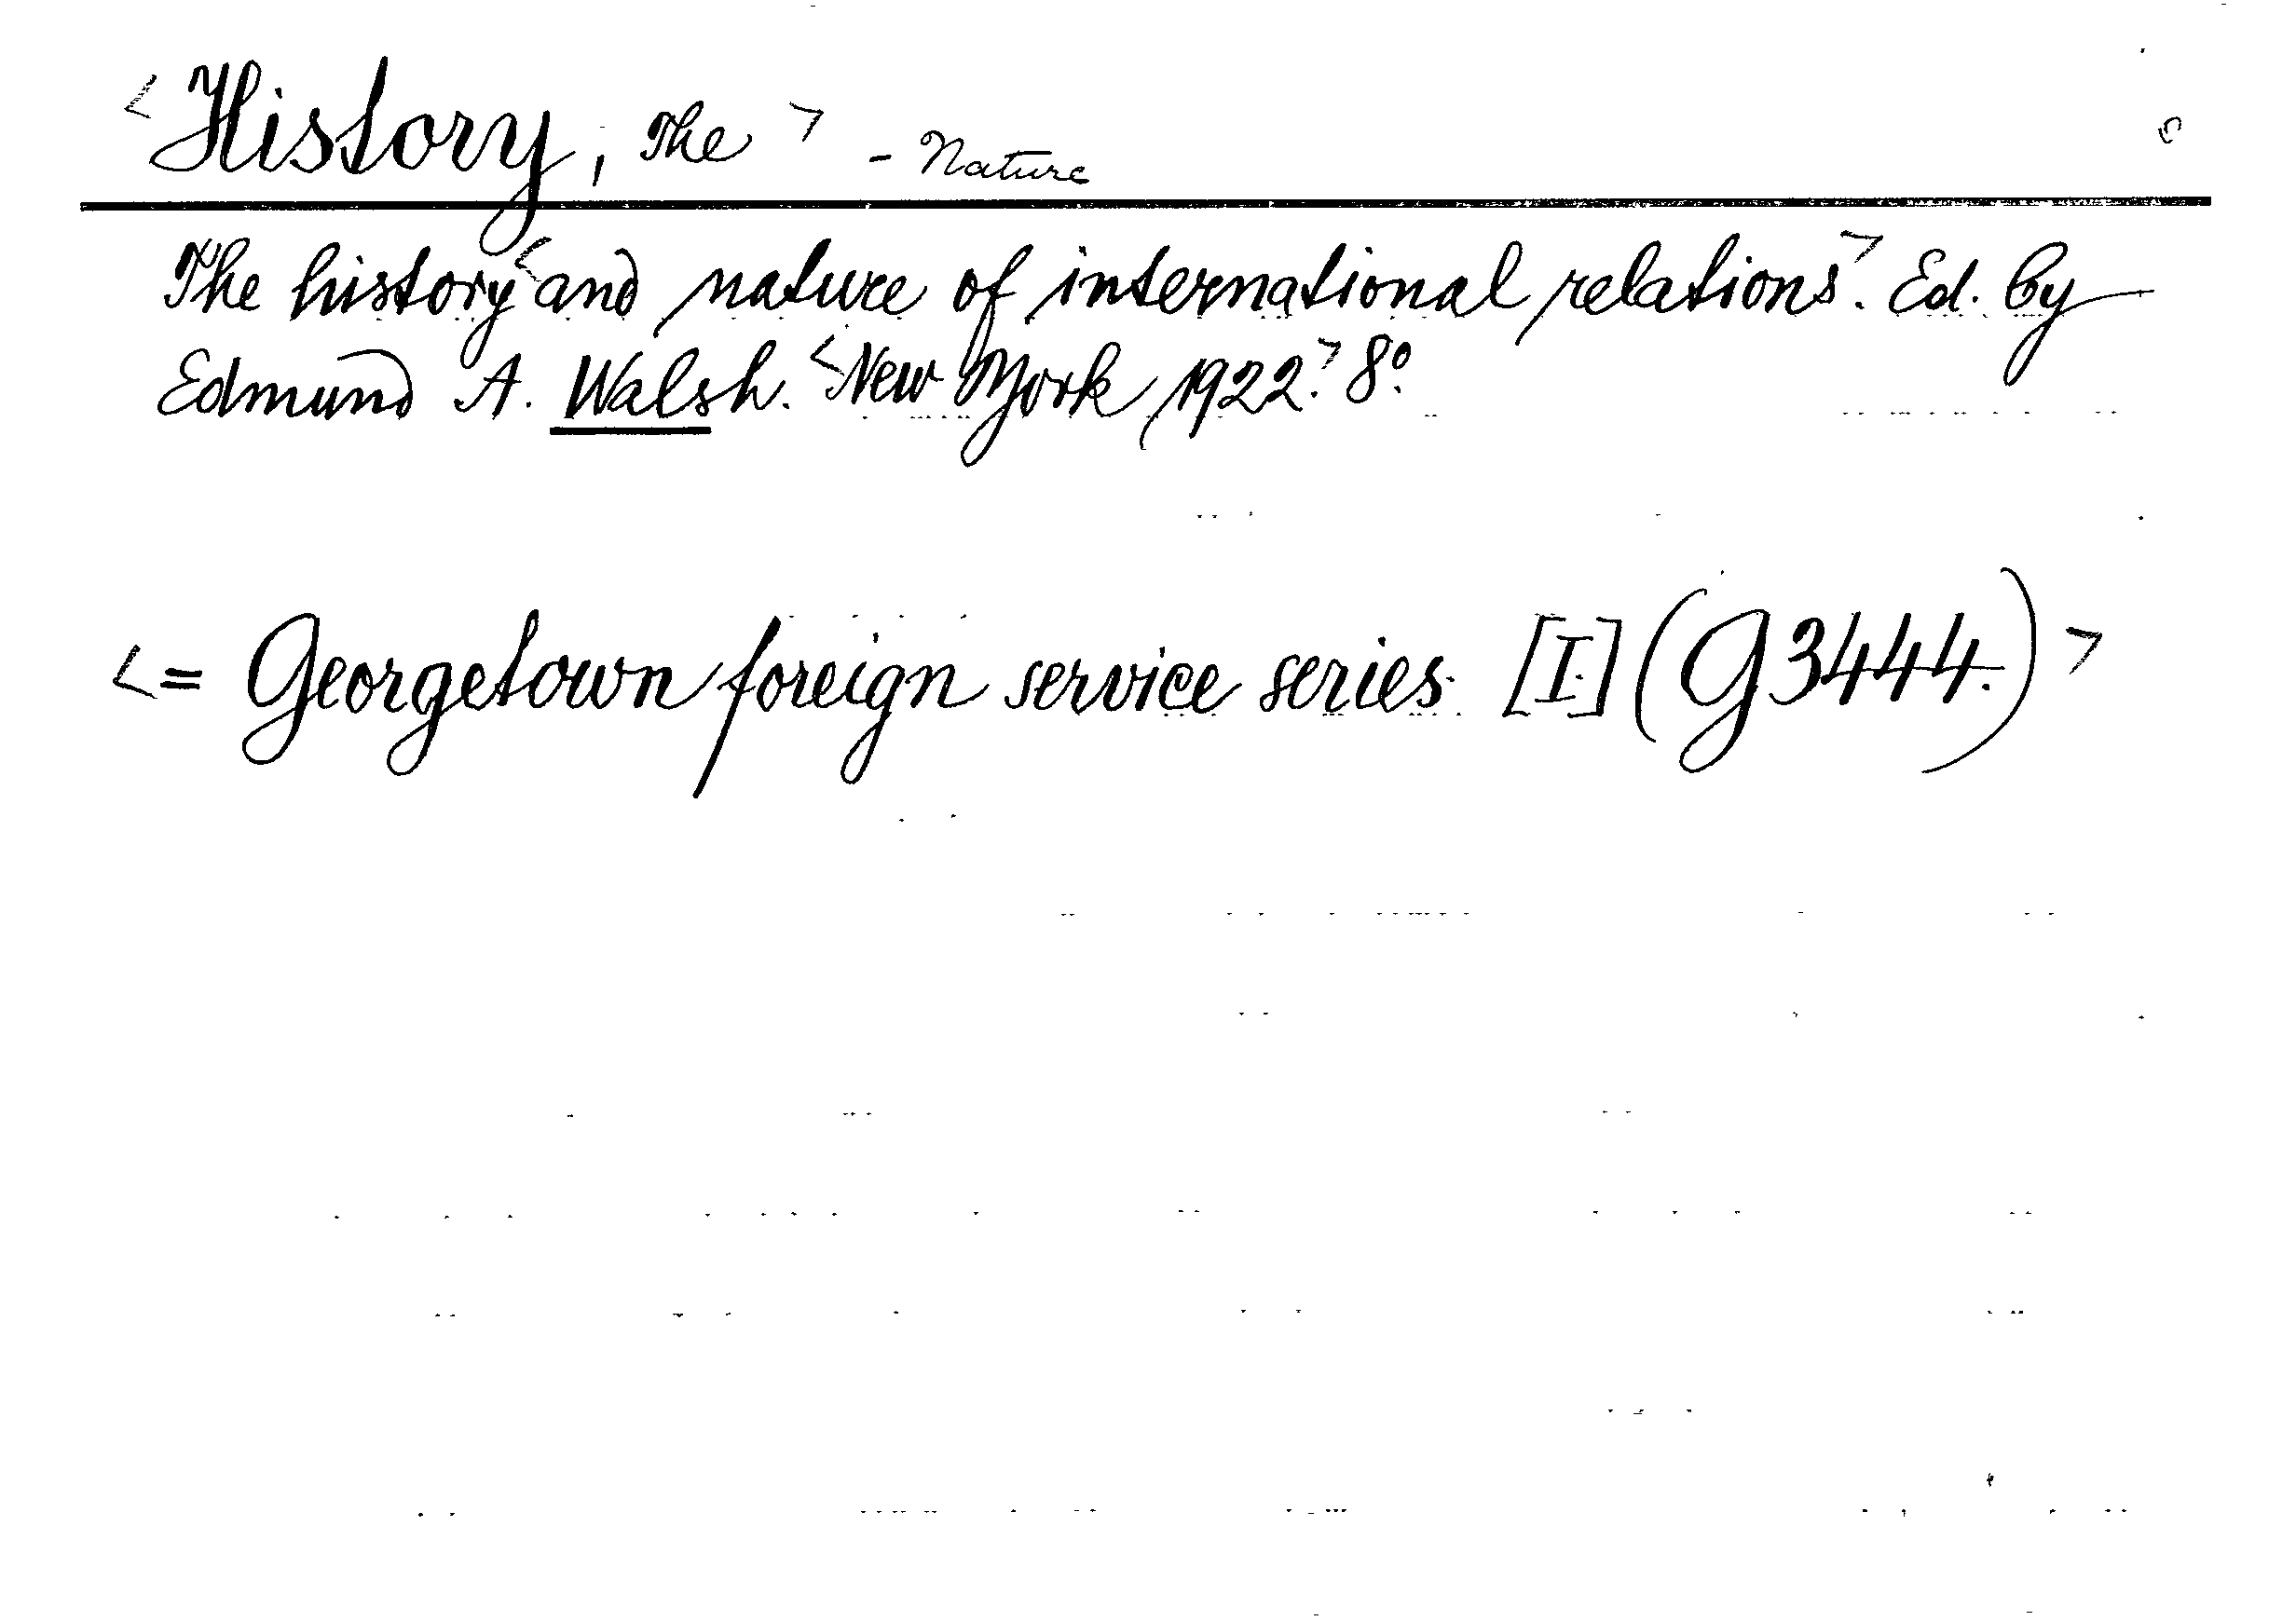 <History, The> - Nature
The history <and nature of international relations>. Ed. by
Edmund A. Walsh. <New York, 1922.> 8°.
<= Georgetown foreign service series. [I.] (G3444.)>